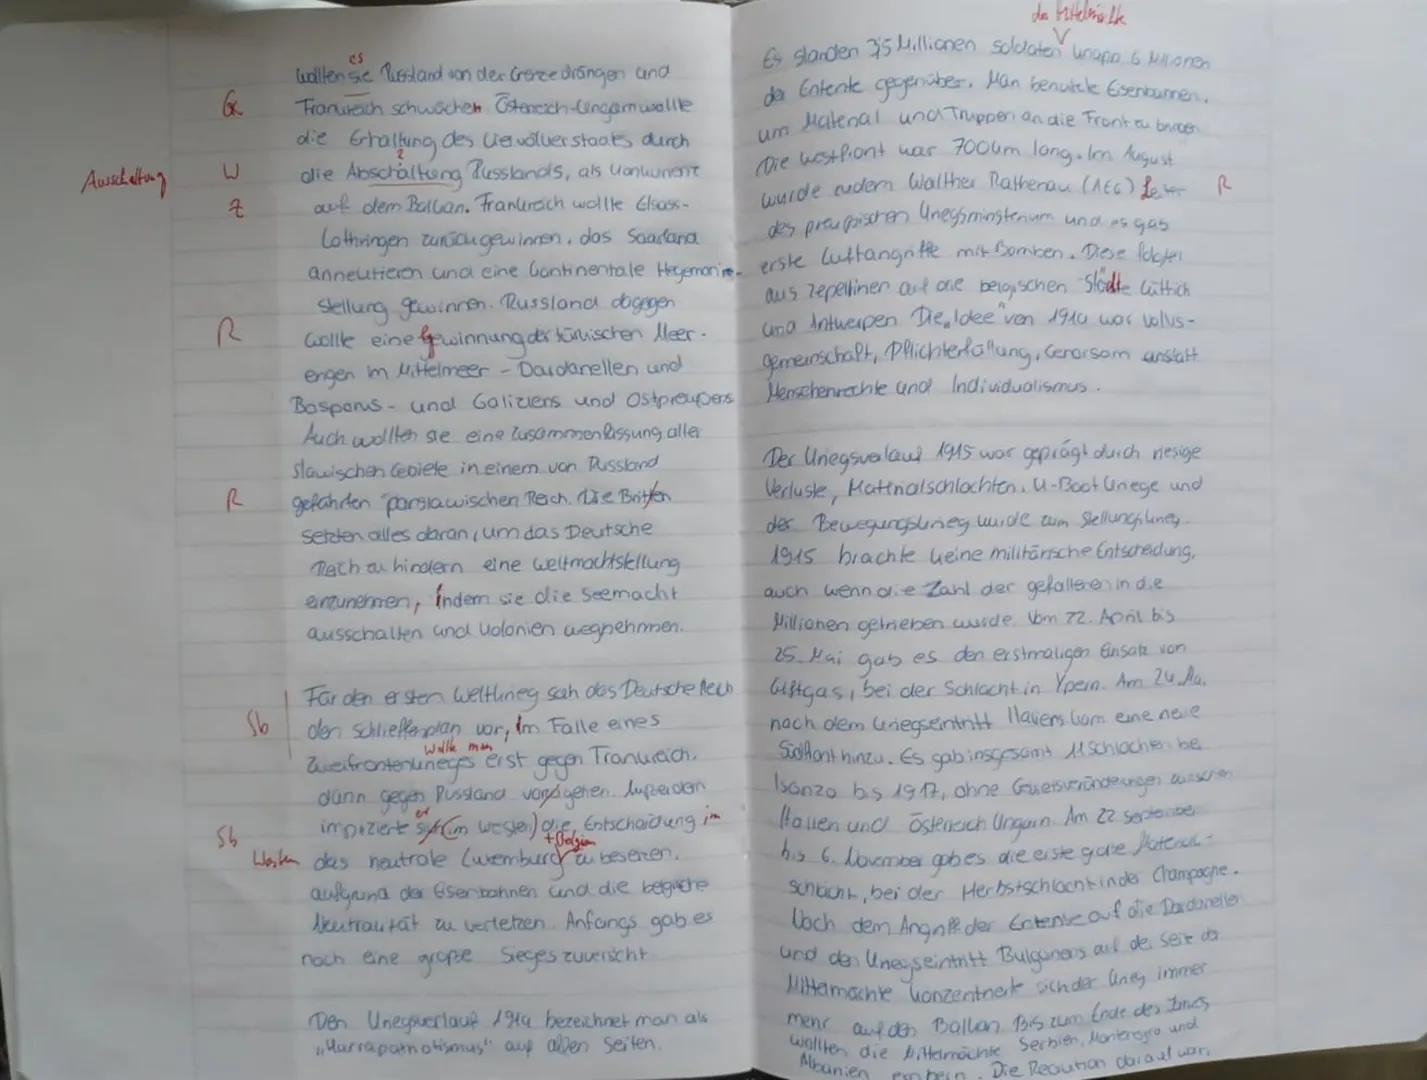 es
wollten sie Russland von der Grenze drängen und
Gr
Frankreich schwächen Östereich-Ungarn wollte
die Erhaltung des Vielvölkerstaats durch
Ausschaltung
W
die Abschaltung Russlands, als Konkurrent
Z
auf dem Balkan. Frankreich wollte Elsass-
Lothringen zurückgewinnen, das Saarland
annektieren und eine kontinentale Hegemonie-
stellung gewinnen. Russland dagegen
R
wollte eine Gewinnung der türkischen Meer-
engen im Mittelmeer - Dardanellen und
Bosporus - und Galiziens und Ostpreußens
Auch wollten sie eine Zusammenfassung aller
slawischen Gebiete in einem von Russland
R
geführten panslawischen Reich. Die Briten
setzten alles daran, um das Deutsche
Reich zu hindern eine Weltmachtstellung
einzunehmen, indem sie die Seemacht
ausschalten und Kolonien wegnehmen.
Für den ersten Weltkrieg sah das Deutsche Reich
Sb
den Schlieffenplan vor, im Falle eines
wollte man
Zweifrontenkrieges erst gegen Frankreich,
dann gegen Russland vorgehen. Außerdem
er
implizierte (im Westen) die Entscheidung im
Sb
+ Belgien
Westen
das neutrale Luxemburg zu besetzen,
aufgrund der Eisenbahnen und die belgische
Neutralität zu verletzen. Anfangs gab es
noch eine große Siegeszuversicht
Den Kriegsverlauf 1914 bezeichnet man als
"Hurrapatriotismus" auf allen Seiten.
der Mittelmächte
Es standen 3,5 Millionen Soldaten knapp 6 Millionen
der Entente gegenüber. Man benutzte Eisenbahnen,
um Material und Truppen an die Front zu bringen
Die Westfront war 700km lang. Im August
wurde zudem Walther Rathenau (AEG) Leiter
R
des preußischen Kriegsministerium und es gab
erste Luftangriffe mit Bomben. Diese folgten
aus Zepellinen auf die belgischen Städte Lüttich
und Antwerpen Die "Idee" von 1914 war Volks-
gemeinschaft, Pflichterfüllung, Gehorsam anstatt
Menschenrechte und Individualismus.
Der Kriegsverlauf 1915 war geprägt durch riesige
Verluste, Matrialschlachten, U-Boot Kriege und
der Bewegungskrieg wurde zum Stellungskrieg.
1915 brachte keine militärische Entscheidung,
auch wenn die Zahl der gefallenen in die
Millionen getrieben wurde. Vom 22. April bis
25. Mai gab es den erstmaligen Einsatz von
Giftgas, bei der Schlacht in Ypern. Am 24. Mai,
nach dem Kriegseintritt Italiens kam eine neue
Südfront hinzu. Es gab insgesamt 11 Schlachen bei
Isonzo bis 1917, ohne zwischen
Italien und Östereich Ungarn. Am 22 September
bis 6. November gab es die erste große Material-
schlacht, bei der Herbstschlacht in der Champagne.
Nach dem Angriff der Entente auf die Dardanellen
und den Kriegseintritt Bulgariens auf der Seite der
Mittelmächte konzentrierte sich der Krieg immer
mehr auf den Balkan. Bis zum Ende des Jahres
wollten die Mittelmächte Serbien, Montenegro und
Albanien erobern. Die Reaktion darauf war,